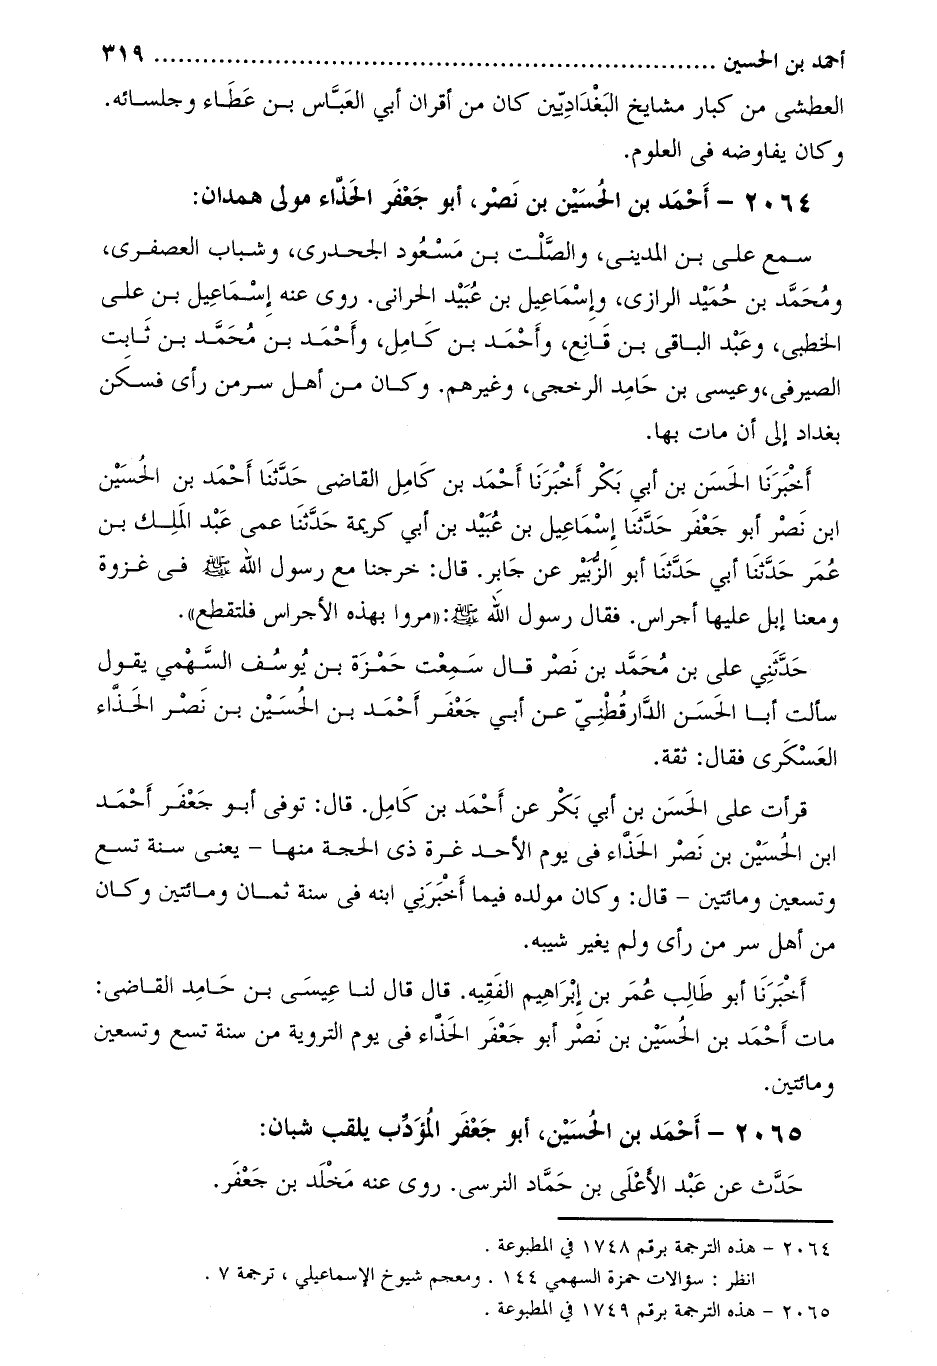 أحمد بن الحسين ........................................................................ ٣١٩
العطشى من كبار مشايخ البَغْدَادِيّين كان من أقران أبي العَبَّاس بن عَطَاء وجلسائه.
وكان يفاوضه فى العلوم.
٢٠٦٤ – أَحْمَد بن الحُسَيْن بن نَصْر، أبو جَعْفَر الحَذَّاء مولى همدان:
سمع على بن المدينى، والصَّلْت بن مَسْعُود الجحدرى، وشباب العصفرى،
ومُحَمَّد بن حُمَيْد الرازى، وإِسْمَاعيل بن عُبَيْد الحرانى. روى عنه إِسْمَاعيل بن على
الخطبى، وعَبْد الباقى بن قَانِع، وأَحْمَد بن كَامِل، وأَحْمَد بن مُحَمَّد بن ثَابت
الصيرفى،وعيسى بن حَامِد الرخجى، وغيرهم. وكان من أهل سرمن رأى فسكن
بغداد إلى أن مات بها.
أَخْبَرَنَا الحَسَن بن أبي بَكْر أَخْبَرَنَا أَحْمَد بن كَامِل القاضى حَدَّثَنَا أَحْمَد بن الحُسَيْن
ابن نَصْر أبو جَعْفَر حَدَّثَنَا إِسْمَاعيل بن عُبَيْد بن أبي كريمة حَدَّثَنَا عمى عَبْد المَلِك بن
عُمَر حَدَّثَنَا أبي حَدَّثَنَا أبو الزُّبَيْر عن جَابِر. قال: خرجنا مع رسول الله ﷺ فى غزوة
ومعنا إبل عليها أجراس. فقال رسول الله ﷺ:«مروا بهذه الأجراس فلتقطع».
حَدَّثَنِي على بن مُحَمَّد بن نَصْر قال سَمِعْت حَمْزَة بن يُوسُف السَّهْمي يقول
سألت أبا الحَسَن الدَّارقُطْنِيّ عن أبي جَعْفَر أَحْمَد بن الحُسَيْن بن نَصْر الحَذَّاء
العَسْكَرى فقال: ثقة.
قرأت على الحَسَن بن أبي بَكْر عن أَحْمَد بن كَامِل. قال: توفى أبو جَعْفَر أَحْمَد
ابن الحُسَيْن بن نَصْر الحَذَّاء فى يوم الأحد غرة ذى الحجة منها – يعنى سنة تسع
وتسعين ومائتين – قال: وكان مولده فيما أَخْبَرَنِي ابنه فى سنة ثمان ومائتين وكان
من أهل سر من رأى ولم يغير شيبه.
أَخْبَرَنَا أبو طَالِب عُمَر بن إِبْرَاهِيم الفَقِيه. قال قال لنا عِيسَى بن حَامِد القاضى:
مات أَحْمَد بن الحُسَيْن بن نَصْر أبو جَعْفَر الحَذَّاء فى يوم التروية من سنة تسع وتسعين
ومائتين.
٢٠٦٥ – أَحْمَد بن الحُسَيْن، أبو جَعْفَر المُؤَدِّب يلقب شبان:
حَدَّث عن عَبْد الأَعْلَى بن حَمَّاد النرسى. روى عنه مَخْلَد بن جَعْفَر.
٢٠٦٤ – هذه الترجمة برقم ١٧٤٨ في المطبوعة .
انظر : سؤالات حمزة السهمي ١٤٤ . ومعجم شيوخ الإسماعيلي ، ترجمة ٧ .
٢٠٦٥ – هذه الترجمة برقم ١٧٤٩ في المطبوعة .